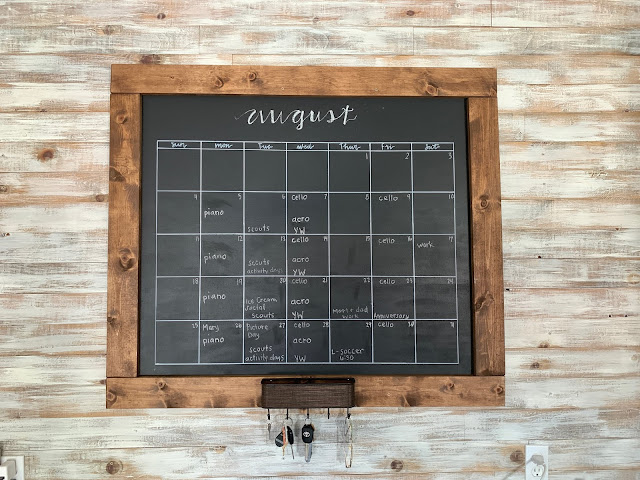 august
sun mon Tue wed Thur Fri Sat
1 2 3
4 5 6 7 8 9 10
piano
scouts
cello
acro
yw
cello
11 12 13 14 15 16 17
piano
scouts
activity days
cello
acro
yw
cello
work
18 19 20 21 22 23 24
piano
Ice Cream
Social
Scouts
cello
acro
yw
Mom + dad
work
cello
Anniversary
25 26 27 28 29 30 31
Mary
piano
Picture
Day
scouts
activity days
cello
acro
yw
L-Soccer
6:30
cello